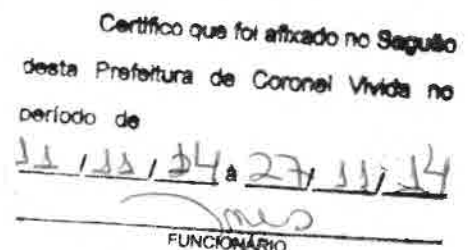 Certifico que foi afixado no Saguão
desta Prefeitura de Coronel Vivida no
período de
11 / 11 / 14 a 27 / 11 / 14
FUNCIONÁRIO